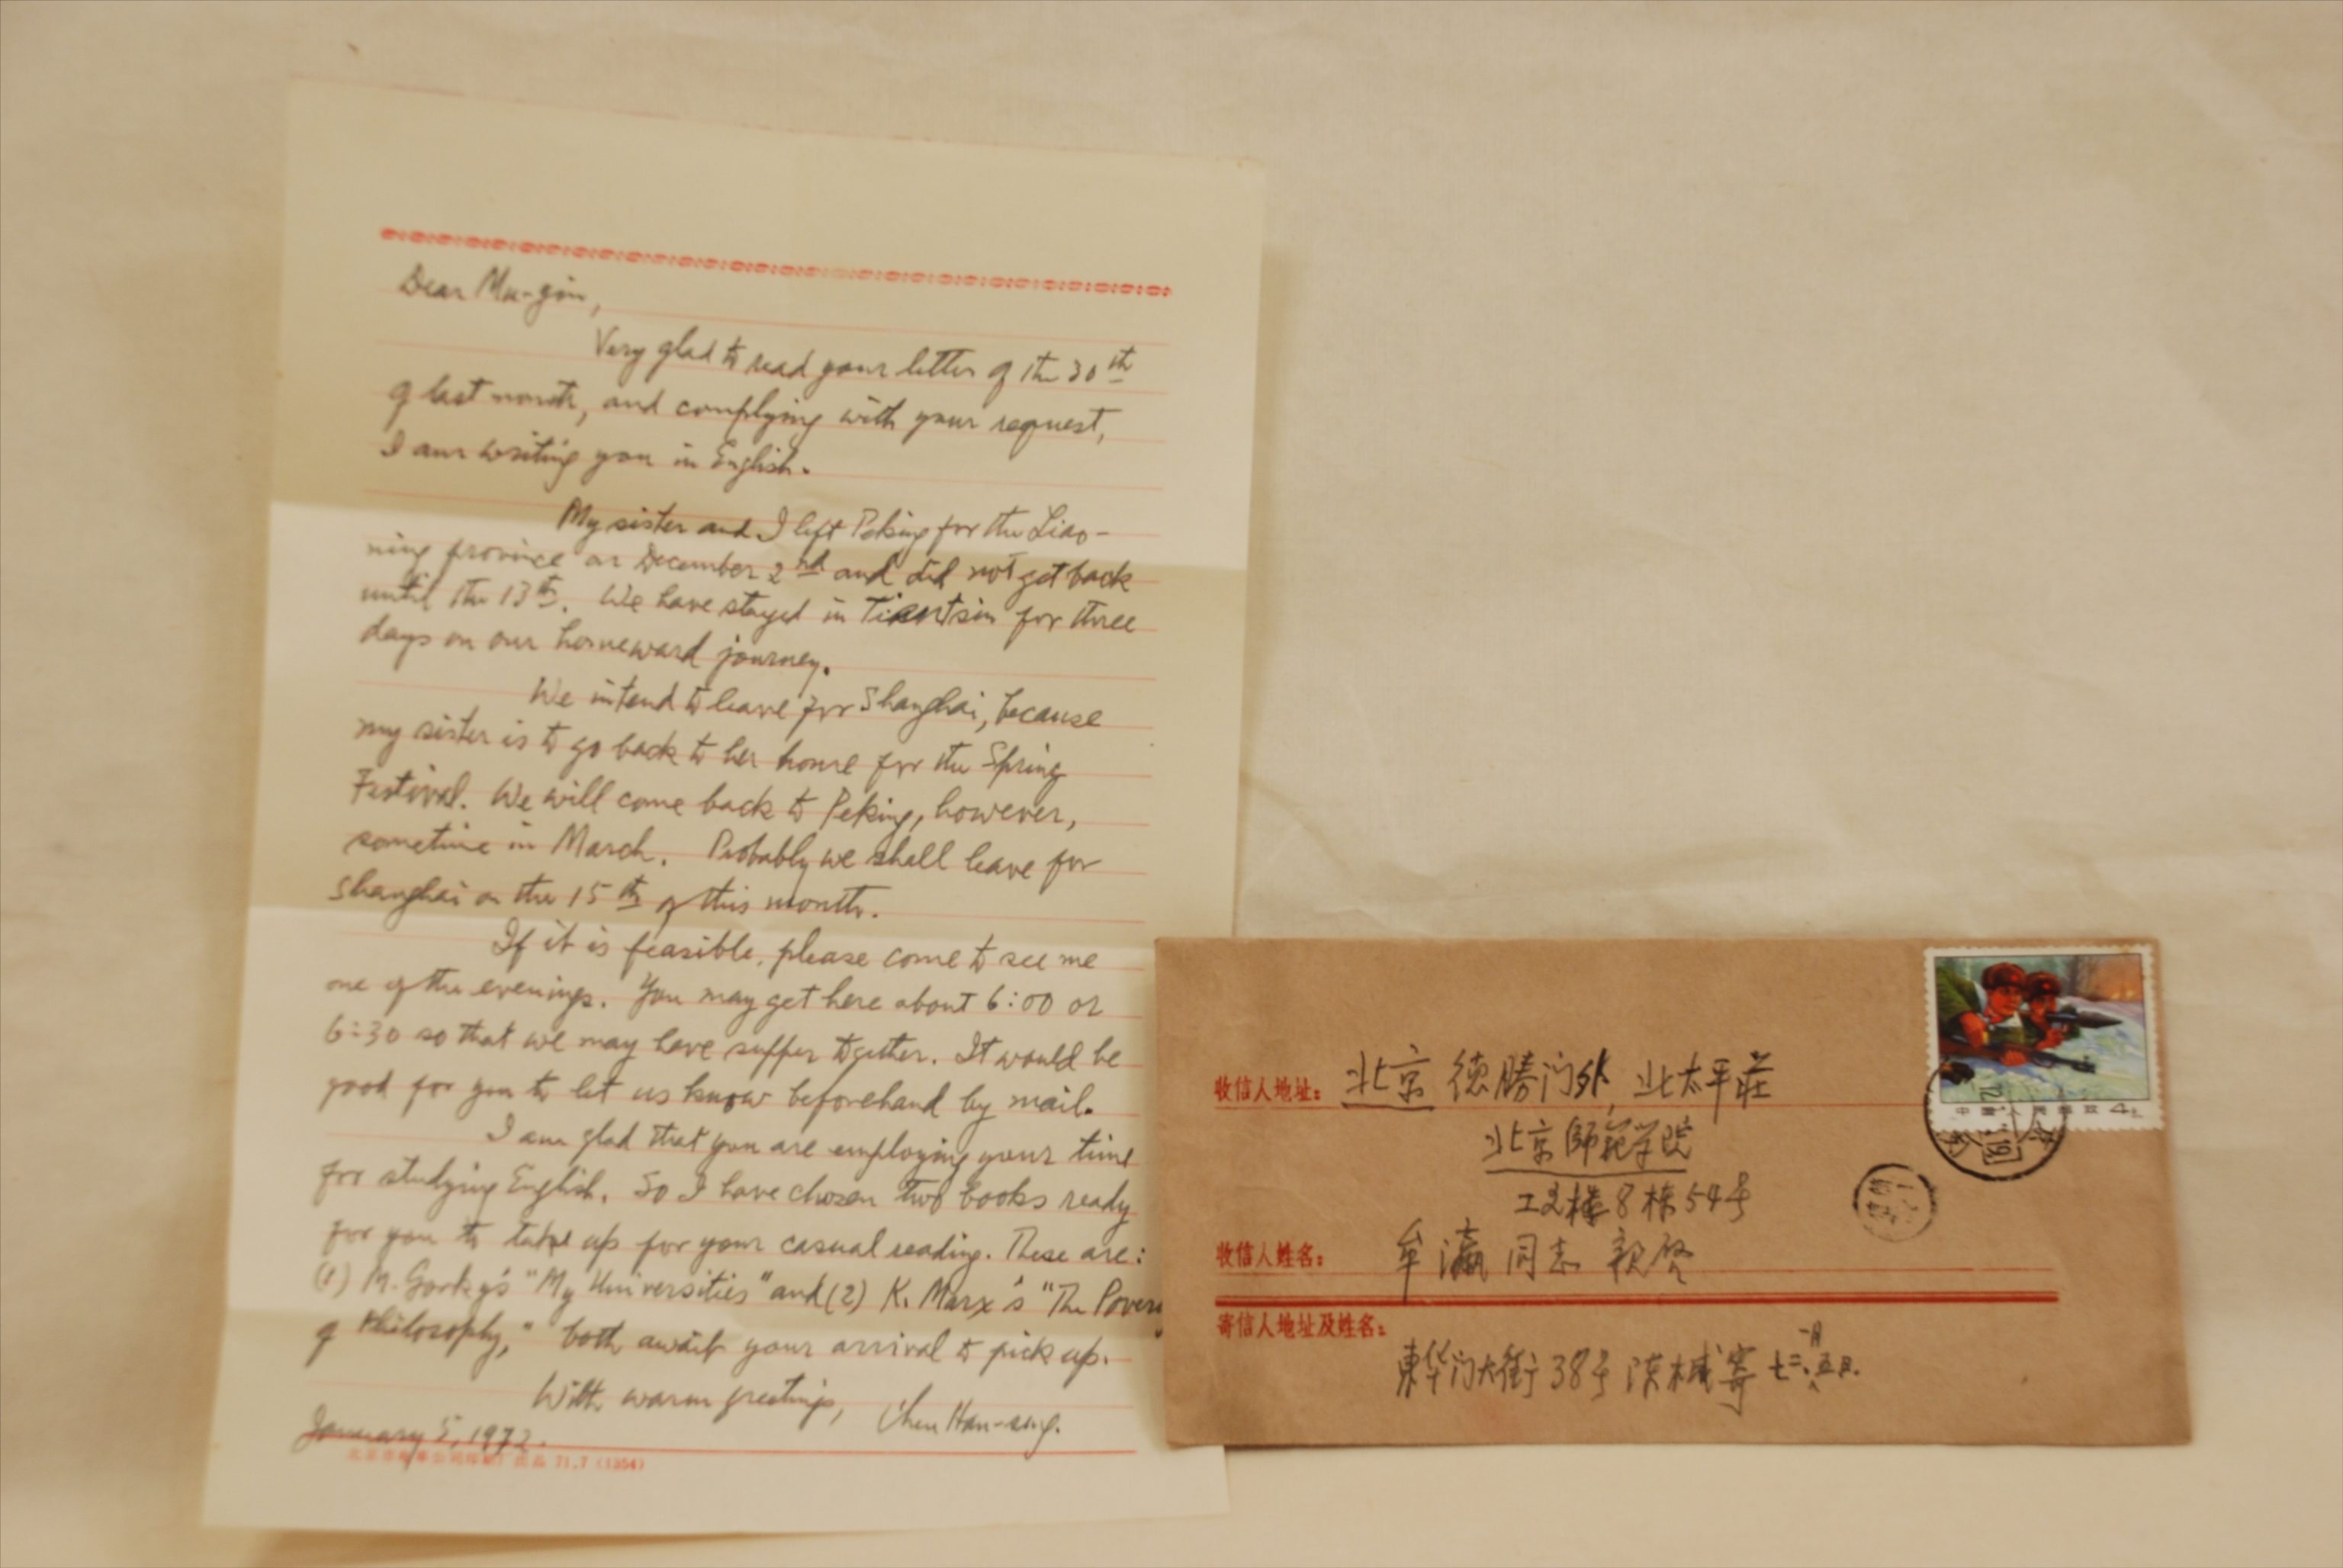 Dear Mu-yin,
Very glad to read your letter of the 30th
of last month, and complying with your request,
I am writing you in English.
My sister and I left Peking for the Liao-
ning province on December 2nd and did not get back
until the 13th. We have stayed in Tientsin for three
days on our homeward journey.
We intend to leave for Shanghai, because
my sister is to go back to her home for the Spring
Festival. We will come back to Peking, however,
sometime in March. Probably we shall leave for
Shanghai on the 15th of this month.
If it is feasible, please come to see me
one of the evenings. You may get here about 6:00 or
6:30 so that we may have supper together. It would be
good for you to let us know beforehand by mail.
I am glad that you are employing your time
for studying English. So I have chosen two books ready
for you to take up for your casual reading. These are:
(1) M. Gorky's "My Universities" and (2) K. Marx's "The Pover
of Philosophy," both await your arrival to pick up.
With warm greetings, Chen Han-seng.
January 5, 1972.
71.7 (1354)
收信人地址: 北京 德勝门外, 北太平莊
北京師範学院
工字楼8栋54号
收信人姓名: 牟瀛 同志 親启
寄信人地址及姓名:
東华门大街38号 陈 寄 七二.一月五日.